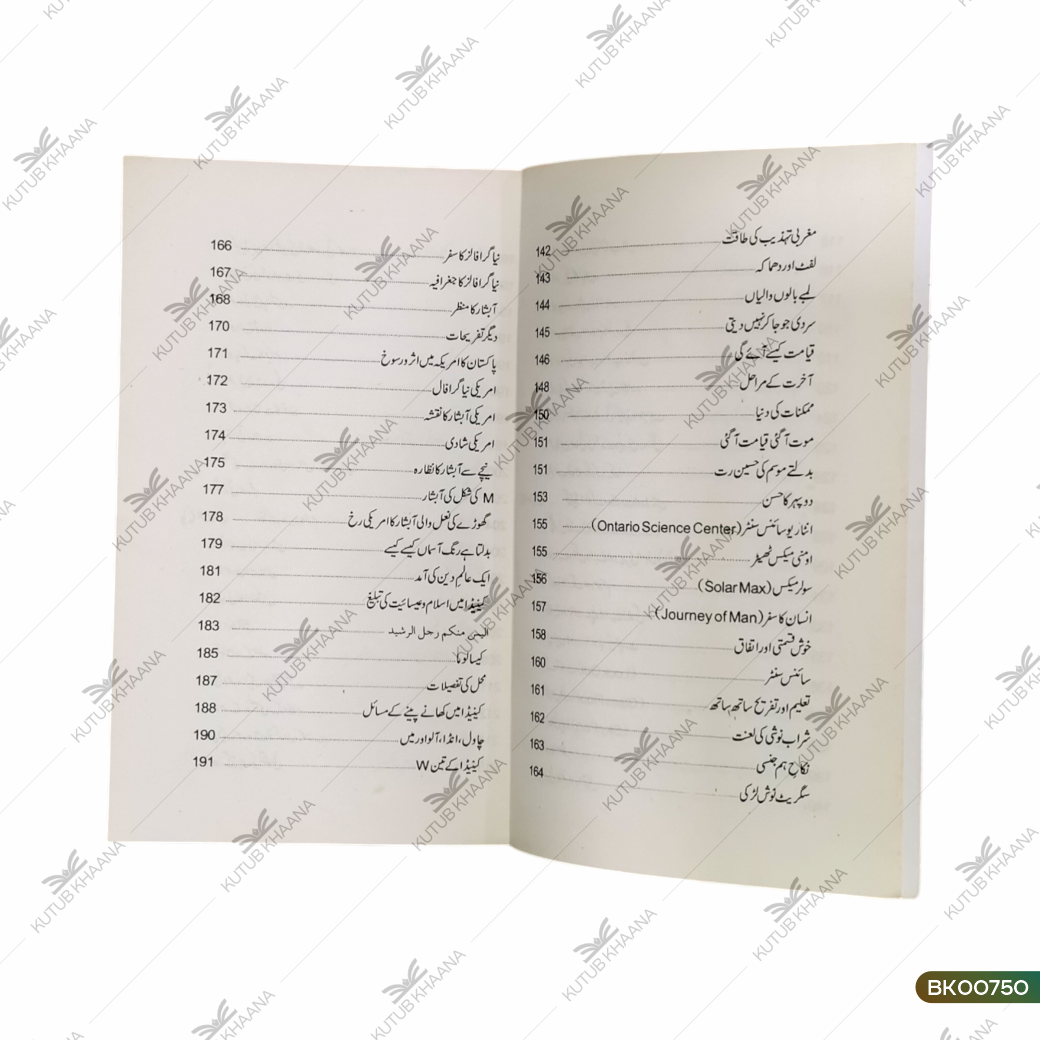 مغربی تہذیب کی طاقت 142
لفٹ اور دھماکہ 143
لمبے بالوں والیاں 144
سردی جو جا کر نہیں دیتی 145
قیامت کیسے آئے گی 146
آخرت کے مراحل 148
ممکنات کی دنیا 150
موت آ گئی قیامت آ گئی 151
بدلتے موسم کی حسین رت 151
دوپہر کا حسن 153
انٹاریو سائنس سنٹر (Ontario Science Center) 155
اومنی میکس تھیٹر 155
سولر میکس (Solar Max) 156
انسان کا سفر (Journey of Man) 157
خوش قسمتی اور اتفاق 158
سائنس سنٹر 160
تعلیم اور تفریح ساتھ ساتھ 161
شراب نوشی کی لعنت 162
نکاح ہم جنسی 163
سگریٹ نوش لڑکی 164
نیاگرا فالز کا سفر 166
نیاگرا فالز کا جغرافیہ 167
آبشار کا منظر 168
دیگر تفریحات 170
پاکستان کا امریکہ میں اثر و رسوخ 171
امریکی نیاگرا فال 172
امریکی آبشار کا نقشہ 173
امریکی شادی 174
نیچے سے آبشار کا نظارہ 175
M کی شکل کی آبشار 177
گھوڑے کی نعل والی آبشار کا امریکی رخ 178
بدلتا ہے رنگ آسماں کیسے کیسے 179
ایک عالم دین کی آمد 181
کینیڈا میں اسلام و عیسائیت کی تبلیغ 182
الیس منکم رجل الرشید 183
کیسا لوما 185
محل کی تفصیلات 187
کینیڈا میں کھانے پینے کے مسائل 188
چاول، انڈا، آلو اور میں 190
کینیڈا کے تین W 191
KUTUB KHAANA
BK00750